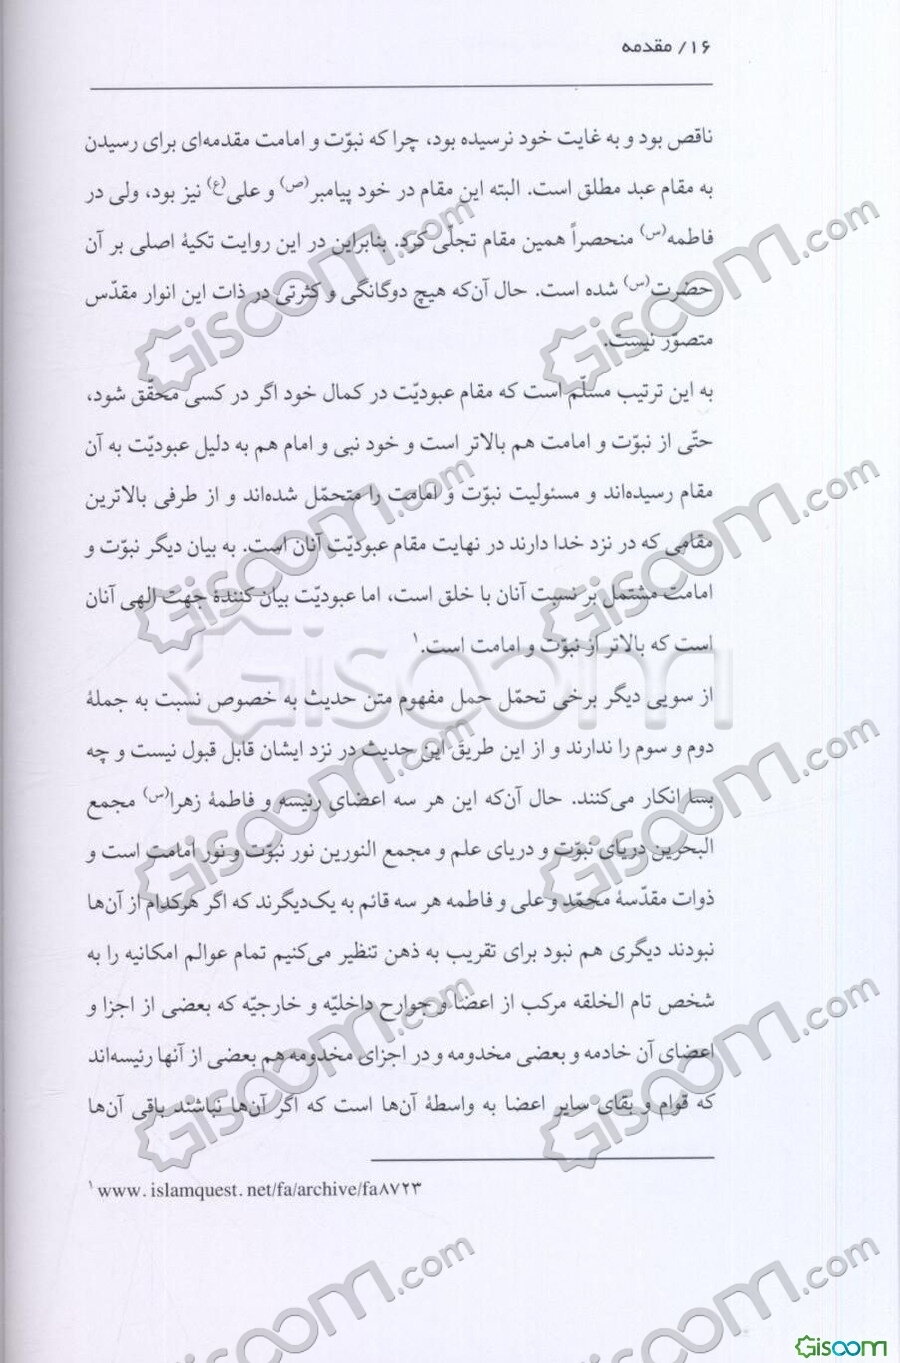 ۱۶/ مقدمه
ناقص بود و به غایت خود نرسیده بود، چرا که نبوّت و امامت مقدمه‌ای برای رسیدن
به مقام عبد مطلق است. البته این مقام در خود پیامبر(ص) و علی(ع) نیز بود، ولی در
فاطمه(س) منحصراً همین مقام تجلّی کرد. بنابراین در این روایت تکیهٔ اصلی بر آن
حضرت(س) شده است. حال آن‌که هیچ دوگانگی و کثرتی در ذات این انوار مقدّس
متصوّر نیست.
به این ترتیب مسلّم است که مقام عبودیّت در کمال خود اگر در کسی محقّق شود،
حتّی از نبوّت و امامت هم بالاتر است و خود نبی و امام هم به دلیل عبودیّت به آن
مقام رسیده‌اند و مسئولیت نبوّت و امامت را متحمّل شده‌اند و از طرفی بالاترین
مقامی که در نزد خدا دارند در نهایت مقام عبودیّت آنان است. به بیان دیگر نبوّت و
امامت مشتمل بر نسبت آنان با خلق است، اما عبودیّت بیان کنندهٔ جهت الهی آنان
است که بالاتر از نبوّت و امامت است.۱
از سویی دیگر برخی تحمّل حمل مفهوم متن حدیث به خصوص نسبت به جملهٔ
دوم و سوم را ندارند و از این طریق این حدیث در نزد ایشان قابل قبول نیست و چه
بسا انکار می‌کنند. حال آن‌که این هر سه اعضای رئیسه و فاطمهٔ زهرا(س) مجمع
البحرین دریای نبوّت و دریای علم و مجمع النورین نور نبوّت و نور امامت است و
ذوات مقدّسهٔ محمّد و علی و فاطمه هر سه قائم به یک‌دیگرند که اگر هرکدام از آن‌ها
نبودند دیگری هم نبود برای تقریب به ذهن تنظیر می‌کنیم تمام عوالم امکانیه را به
شخص تام الخلقه مرکب از اعضا و جوارح داخلیّه و خارجیّه که بعضی از اجزا و
اعضای آن خادمه و بعضی مخدومه و در اجزای مخدومه هم بعضی از آنها رئیسه‌اند
که قوام و بقای سایر اعضا به واسطهٔ آن‌ها است که اگر آن‌ها نباشند باقی آن‌ها
۱ www. islamquest. net/fa/archive/fa۸۷۲۳
Giscom.com
Giscom.com
Giscom.com
Giscom.com
Giscoom
Giscom.com
Giscom.com
Giscom.com
Giscom.com
Giscom.com
Giscom.com
Gisoom